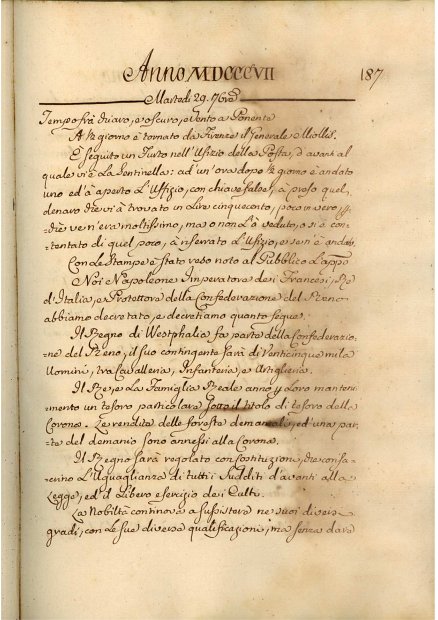 Anno MDCCCVII 187
Martedì 29. 76re
Tempo frà chiaro, e oscuro, e vento a Ponente
A ½ giorno è tornato da Firenze il Generale Miollis.
È seguito un Furto nell'Ufizio della Posta, d'avanti al
quale vi è la Sentinella: ad un'ora dopo ½ giorno è andato
uno ed à aperto l'Uffizio, con chiave falsa, à preso quel
denaro che vi à trovato in Lire cinquecento, poco in vero,
chè ve n'era moltissimo, ma o non l'à veduto, o si è con-
tentato di quel poco, à riserrato l'Ufizio, e sen'è andato.
Con le Stampe è stato reso noto al Pubblico
Noi Napoleone Imperatore dei Francesi, Re
d'Italia, e Protettore della Confederazione del Reno
abbiamo decretato, e decretiamo quanto segue.
Il Regno di Westphalia fà parte della Confederazio-
ne del Reno, il suo contingente sarà di Venticinque mila
Uomini, tra Cavalleria, Infanteria, e Artiglieria.
Il Re, e La Famiglia Reale anno p Loro manteni-
mento un tesoro particolare sotto il titolo di tesoro della
Corona. Le rendite delle foreste demaniali, ed una par-
te del demanio sono annessi alla Corona.
Il Regno sarà regolato con Costituzioni, che consa-
crino L'Uguaglianza di tutti i Sudditi d'avanti alla
Legge, ed il Libero esercizio dei Culti.
La Nobiltà continova a sussistere ne suoi diversi
gradi, con le sue diverse qualificazioni, ma senza dare